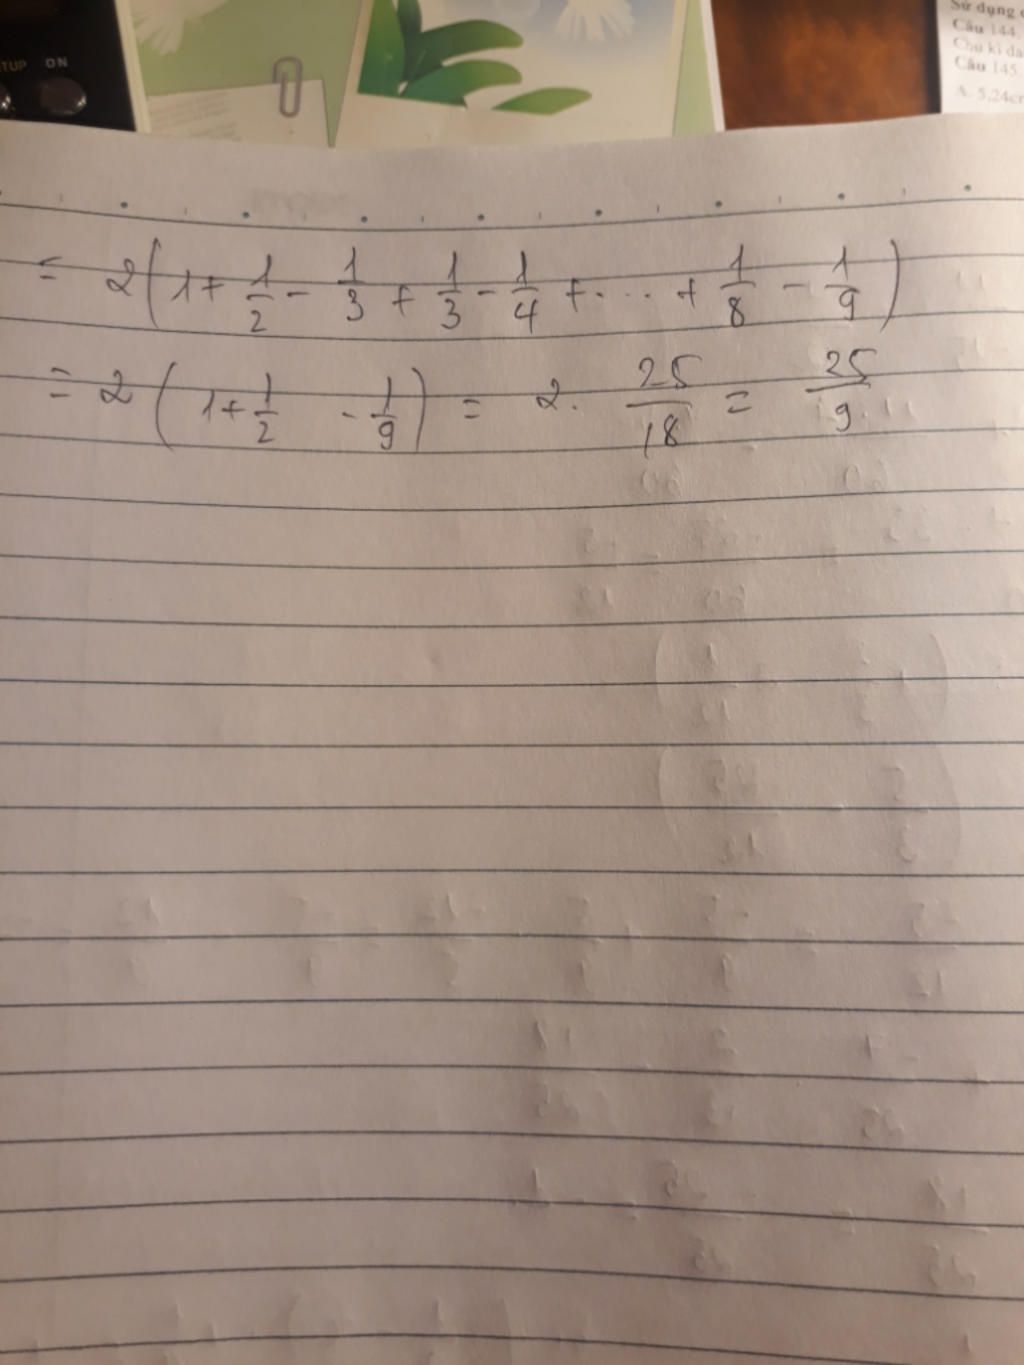 ON
Sử dụng
Câu 144.
Chu kì da
Câu 145.
A. 5,24cm
= 2(1 + 1/2 - 1/3 + 1/3 - 1/4 + ... + 1/8 - 1/9)
= 2(1 + 1/2 - 1/9) = 2. 25/18 = 25/9